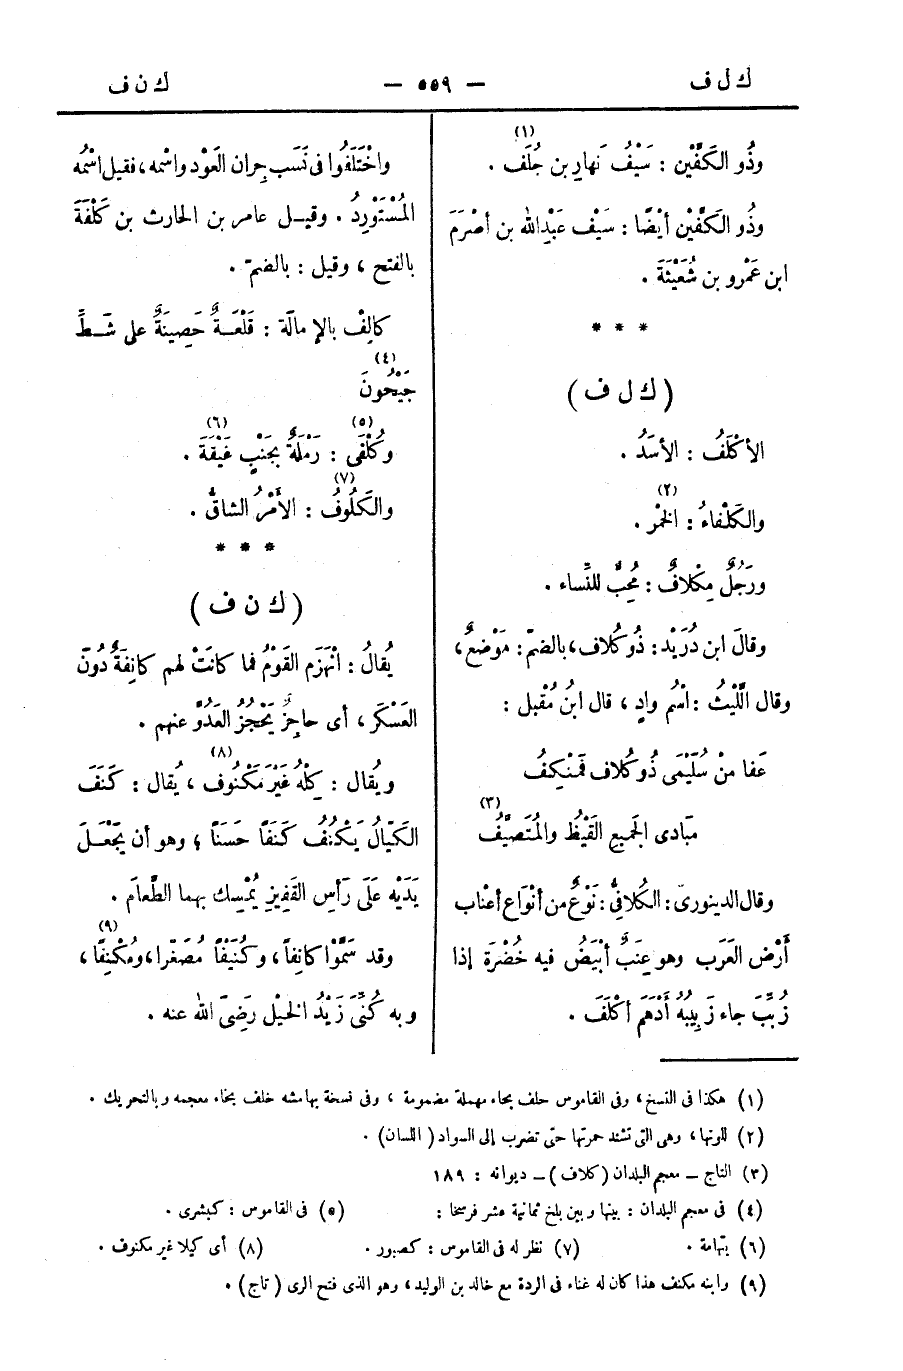 ك ل ف — ٥٥٩ — ك ن ف
وذُو الكَفَّيْن : سَيْفُ نَهارِ بن جُلَف (١) .
وذُو الكَفَّيْن أيْضًا : سَيْف عَبْدِالله بن أصْرَمَ
ابن عَمْرو بن شُعَيْثَةَ .
* * *
( ك ل ف )
الأكْلَفُ : الأسَدُ .
والكَلْفاءُ (٢) : الخَمْر .
ورَجُلٌ مِكْلافٌ : مُحِبٌّ للنِّساء .
وقالَ ابن دُرَيْد : ذُو كلاف ، بالضمّ : مَوْضِعٌ ،
وقال اللَّيْثُ : اسْمُ وادٍ ، قال ابنُ مُقْبل :
عَفا مِنْ سُلَيْمَى ذُو كلاف فَمَنْكِفُ
مَبادى الجَميعِ القَيْظُ والمُتَصَيَّفُ (٣)
وقال الدينورىّ : الكُلافىُّ : نَوْعٌ من أنْوَاع أعْناب
أَرْض العَرَب وهو عِنَبٌ أبْيَضُ فيه خُضْرَة إذا
زُبِّبَ جاء زَبِيبُهُ أدْهَمَ أكْلَفَ .
واخْتَلَفُوا فى نَسَب جِران العَوْد واسْمه ، فقيل اسْمُه
المُسْتَوْرِدُ . وقيـل عامر بن الحارث بن كَلْفَةَ
بالفتح ، وقيل : بالضمّ .
كالِفْ بالإمالَة : قَلْعَـةٌ حَصِينَةٌ على شَـطِّ
جَيْحُونَ (٤)
وكُلْفَى (٥) : رَمْلَةٌ بجَنْبِ غَيْقَةَ (٦) .
والكَلُوفُ (٧) : الأمْرُ الشاقُّ .
* * *
( ك ن ف )
يُقالُ : انْهَزَم القَوْمُ فما كانَتْ لهم كانِفَةٌ دُونَ
العَسْكَر ، أى حاجِزٌ يَحْجُزُ العَدُوَّ عنهم .
ويُقال : كِلْهُ غَيْرَ مَكْنُوف (٨) ، يُقال : كَنَفَ
الكَيّالُ يَكْنُفُ كَنَفًا حَسَنًا ؛ وهو أن يَجْعَـلَ
يَدَيْه عَلَى رَأس القَفِيز يُمْسِك بهما الطَّعامَ .
وقد سَمَّوْا كانِفاً ، وكُنَيْفًا مُصَغّرا ، ومُكْنِفًا (٩) ،
وبه كُنِّىَ زَيْدُ الخَيْل رَضِىَ الله عنه .
(١) هكذا فى النسخ ، وفى القاموس حلف بحاء مهملة مضمومة ، وفى نسخة بهامشه خلف بخاء معجمه وبالتحريك .
(٢) للونها ، وهى التى تشتد حمرتها حتى تضرب إلى السواد ( اللسان ) .
(٣) التاج – معجم البلدان ( كلاف ) – ديوانه : ١٨٩
(٤) فى معجم البلدان : بينها وبين بلخ ثمانية عشر فرسخا : (٥) فى القاموس : كبشرى .
(٦) بتهامة . (٧) نظر له فى القاموس : كصبور . (٨) أى كيلا غير مكنوف .
(٩) وابنه مكنف هذا كان له غناء فى الردة مع خالد بن الوليد ، وهو الذى فتح الرى ( تاج ) .